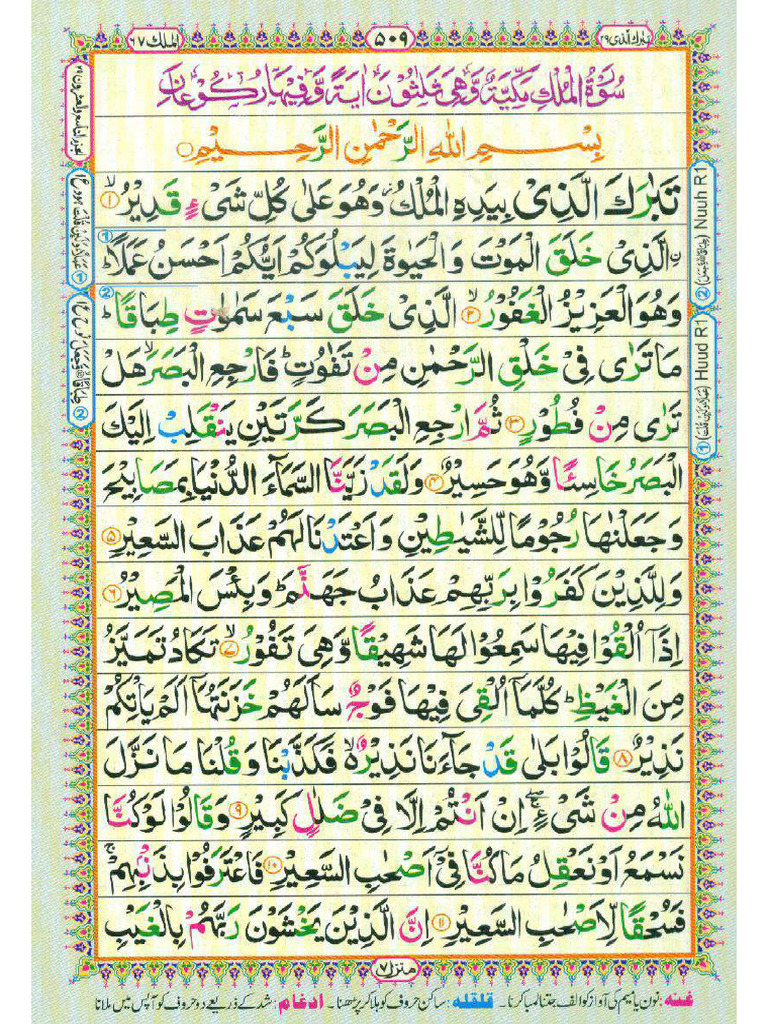 تبٰرك الّذى ٢٩
٥٠٩
الملك ٦٧
سُوْرَةُ الْمُلْكِ مَكِّيَّةٌ وَّهِيَ ثَلٰثُوْنَ اٰيَةً وَّفِيْهَا رُكُوْعَانِ
بِسْمِ اللّٰهِ الرَّحْمٰنِ الرَّحِيْمِ ۝
تَبٰرَكَ الَّذِىْ بِيَدِهِ الْمُلْكُ ز وَهُوَ عَلٰى كُلِّ شَىْءٍ قَدِيْرُ ۙ﴿١﴾
ن الَّذِىْ خَلَقَ الْمَوْتَ وَالْحَيٰوةَ لِيَبْلُوَكُمْ اَيُّكُمْ اَحْسَنُ عَمَلًا ؕ
وَهُوَ الْعَزِيْزُ الْغَفُوْرُ ۙ﴿٢﴾ الَّذِىْ خَلَقَ سَبْعَ سَمٰوٰتٍ طِبَاقًا ؕ
مَا تَرٰى فِىْ خَلْقِ الرَّحْمٰنِ مِنْ تَفٰوُتٍ ؕ فَارْجِعِ الْبَصَرَ ۙ هَلْ
تَرٰى مِنْ فُطُوْرٍ ﴿٣﴾ ثُمَّ ارْجِعِ الْبَصَرَ كَرَّتَيْنِ يَنْقَلِبْ اِلَيْكَ
الْبَصَرُ خَاسِئًا وَّهُوَ حَسِيْرٌ ﴿٤﴾ وَلَقَدْ زَيَّنَّا السَّمَآءَ الدُّنْيَا بِمَصَابِيْحَ
وَجَعَلْنٰهَا رُجُوْمًا لِّلشَّيٰطِيْنِ وَاَعْتَدْنَا لَهُمْ عَذَابَ السَّعِيْرِ ﴿٥﴾
وَلِلَّذِيْنَ كَفَرُوْا بِرَبِّهِمْ عَذَابُ جَهَنَّمَ ؕ وَبِئْسَ الْمَصِيْرُ ﴿٦﴾
اِذَاۤ اُلْقُوْا فِيْهَا سَمِعُوْا لَهَا شَهِيْقًا وَّهِىَ تَفُوْرُ ۙ﴿٧﴾ تَكَادُ تَمَيَّزُ
مِنَ الْغَيْظِ ؕ كُلَّمَاۤ اُلْقِىَ فِيْهَا فَوْجٌ سَاَلَهُمْ خَزَنَتُهَاۤ اَلَمْ يَاْتِكُمْ
نَذِيْرٌ ﴿٨﴾ قَالُوْا بَلٰى قَدْ جَآءَنَا نَذِيْرٌ ۙ۬ فَكَذَّبْنَا وَقُلْنَا مَا نَزَّلَ
اللّٰهُ مِنْ شَىْءٍ ۚۖ اِنْ اَنْتُمْ اِلَّا فِىْ ضَلٰلٍ كَبِيْرٍ ﴿٩﴾ وَقَالُوْا لَوْ كُنَّا
نَسْمَعُ اَوْ نَعْقِلُ مَا كُنَّا فِىْۤ اَصْحٰبِ السَّعِيْرِ ﴿١٠﴾ فَاعْتَرَفُوْا بِذَنْۢبِهِمْ ۚ
فَسُحْقًا لِّاَصْحٰبِ السَّعِيْرِ ﴿١١﴾ اِنَّ الَّذِيْنَ يَخْشَوْنَ رَبَّهُمْ بِالْغَيْبِ
Nuuh R1
Huud R1
منزل ٧
غنه : نون یا میم کی آواز کو الف جتنا لمبا کرنا۔ قلقله : ساکن حروف کو ہلا کر پڑھنا۔ ادغام : شد کے ذریعے دو حروف کو آپس میں ملانا